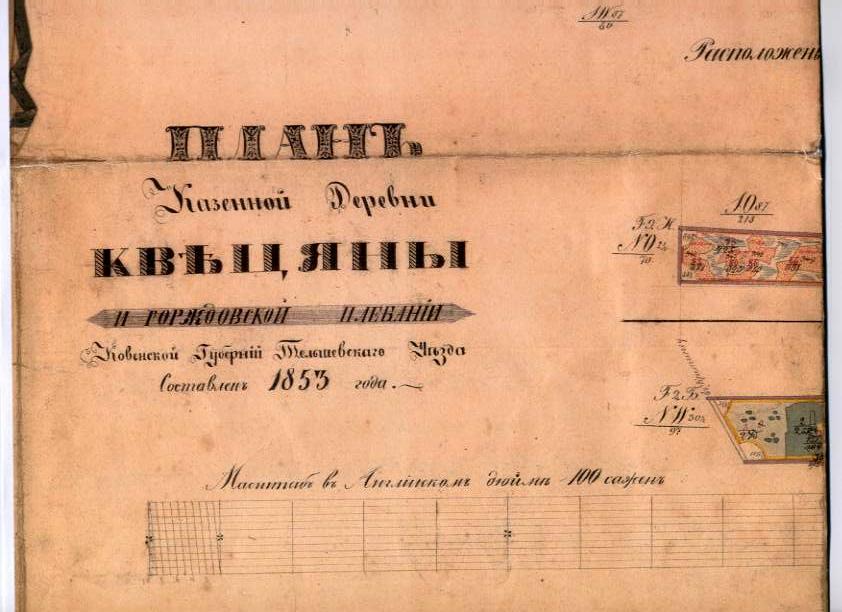 Расположен
ПЛАНЪ
Казенной Деревни
КВѢЦЯНЫ
И ГОРЖДОВСКОЙ ПЛЕБАНІИ
Ковенской Губерніи Тельшевскаго Уѣзда
Составленъ 1853 года.
10 87
218
NO 24
70
NW 304
97
Масштабъ въ Англійскомъ дюймѣ 100 саженъ